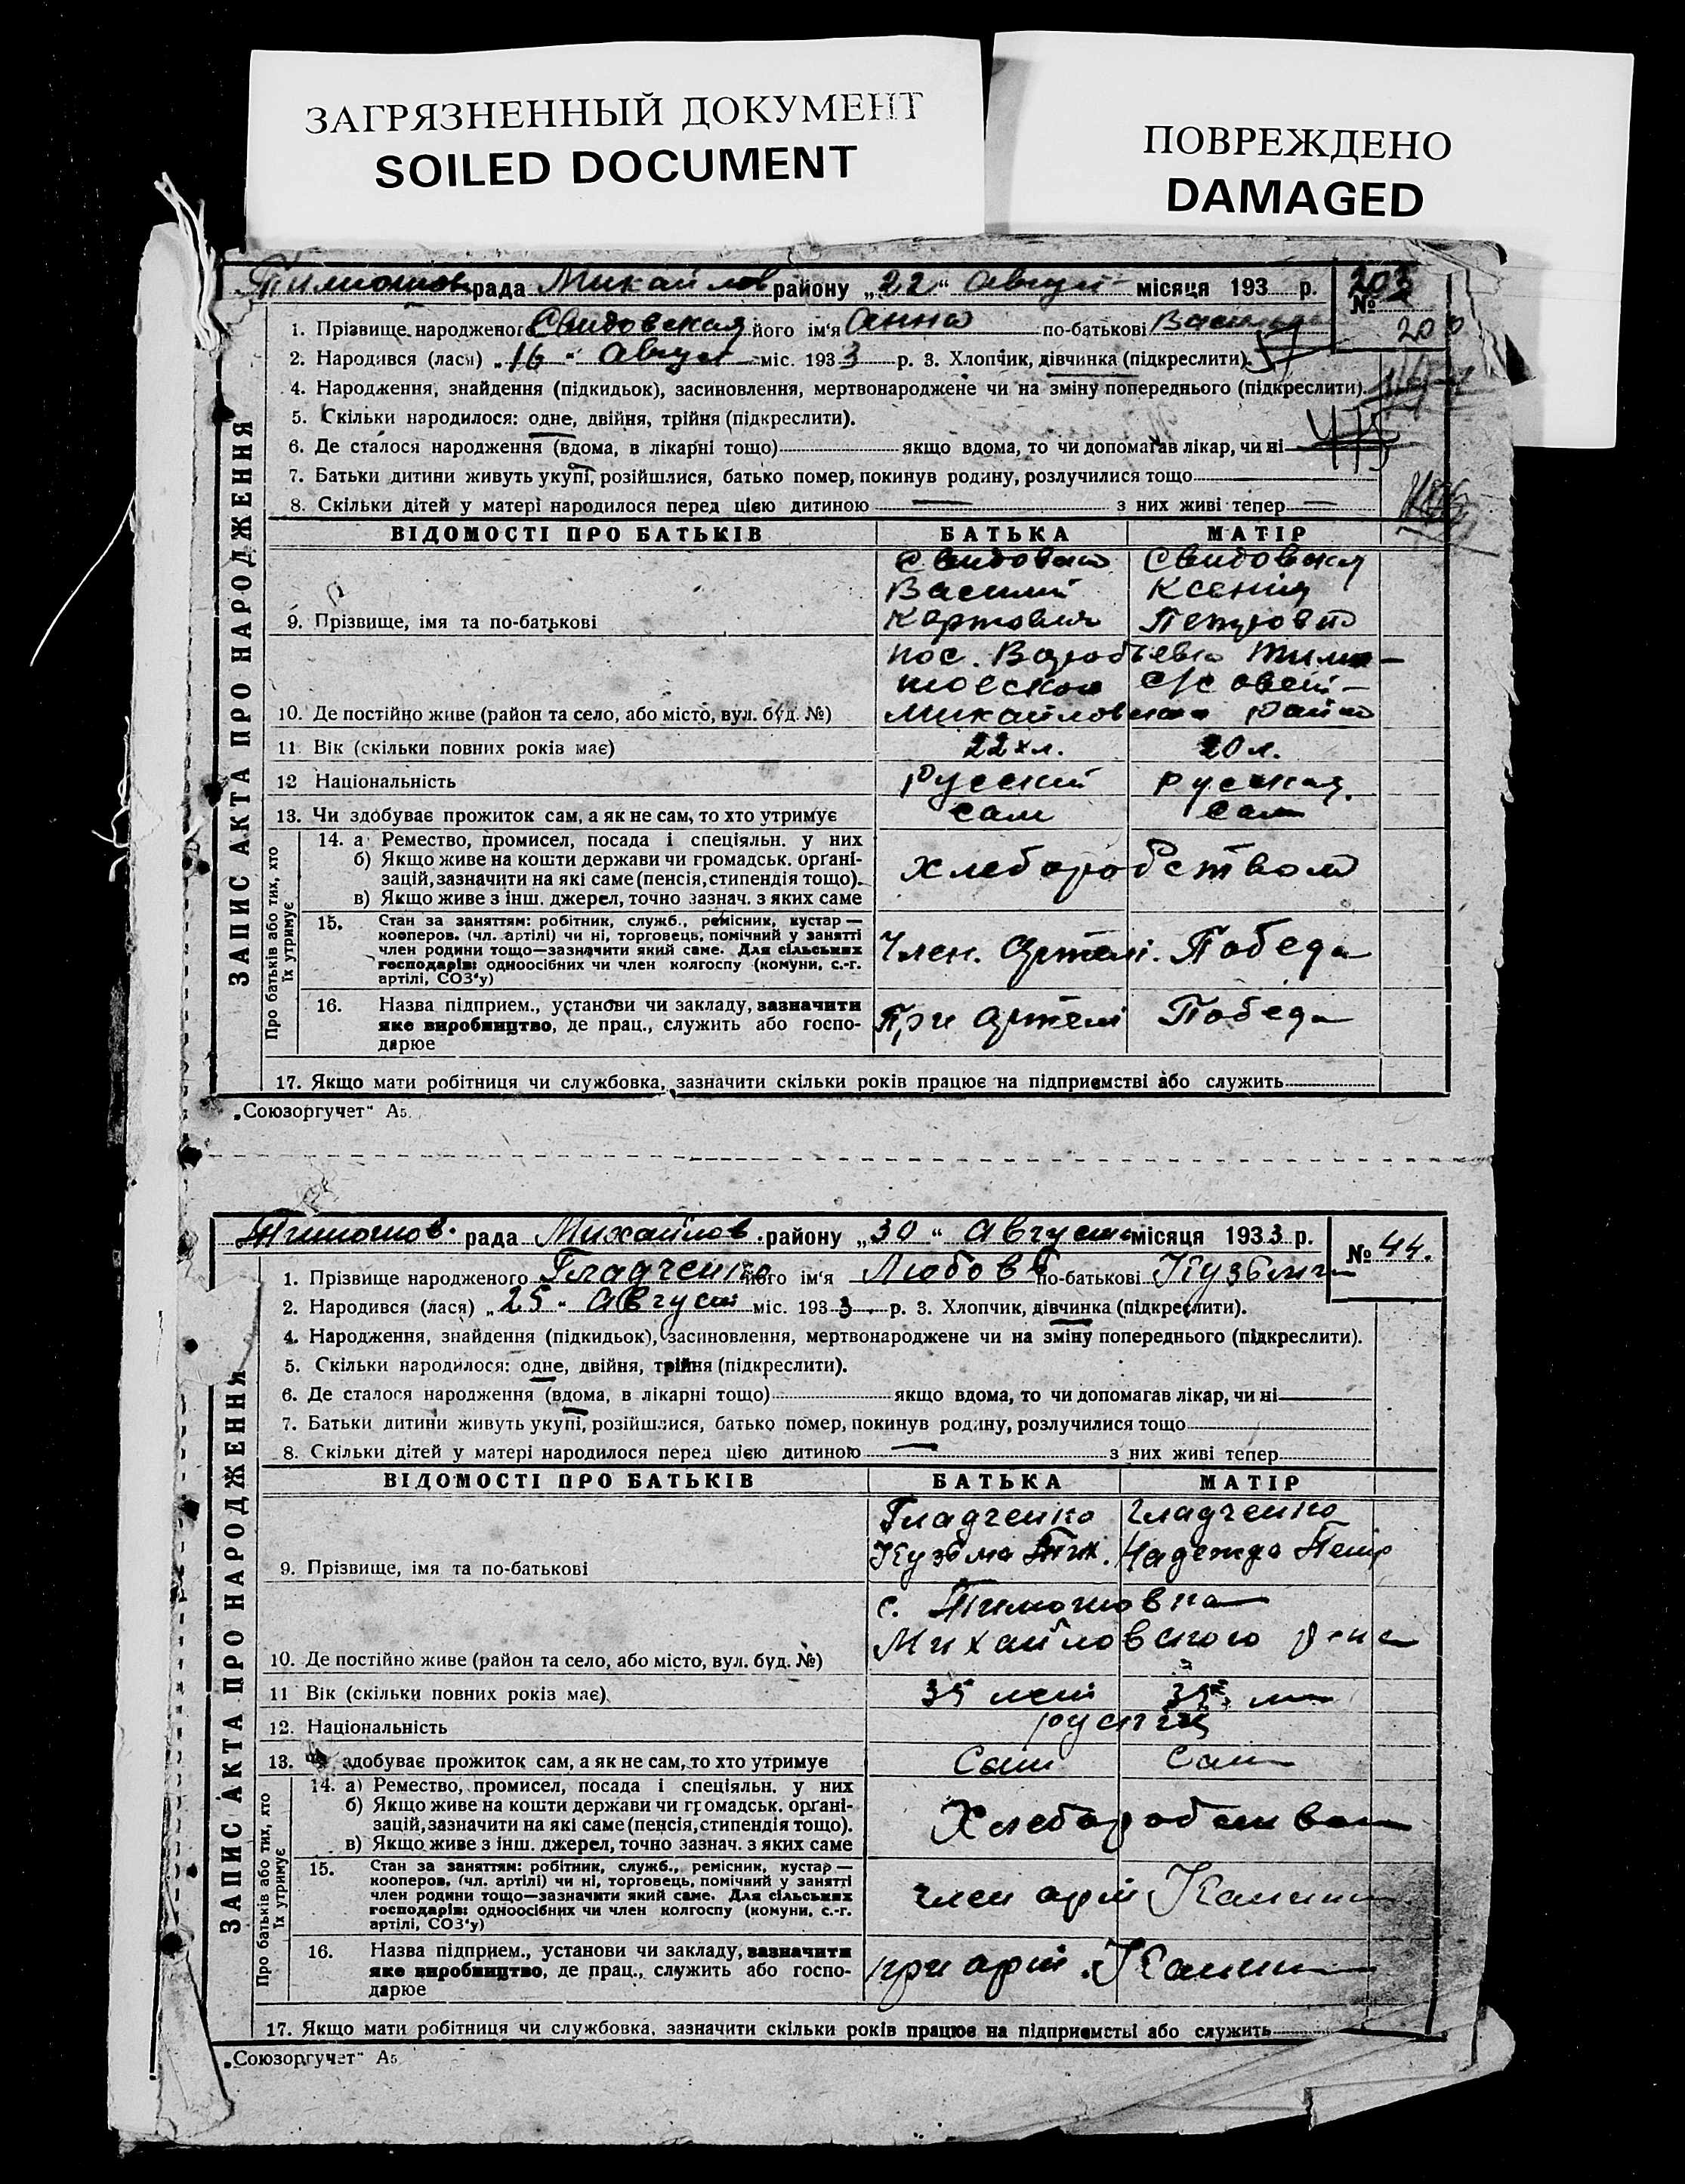 ЗАГРЯЗНЕННЫЙ ДОКУМЕНТ
SOILED DOCUMENT
ПОВРЕЖДЕНО
DAMAGED
Тимошов рада Михайлов району „22“ Август місяця 193 р. № 203
200
1. Прізвище народженого Свидовская його ім'я Анна по-батькові
2. Народився (лася) „16“ Август міс. 1933 р. 3. Хлопчик, дівчинка (підкреслити).
4. Народження, знайдення (підкидьок), засиновлення, мертвонароджене чи на зміну попереднього (підкреслити).
5. Скільки народилося: одне, двійня, трійня (підкреслити).
6. Де сталося народження (вдома, в лікарні тощо) якщо вдома, то чи допомагав лікар, чи ні
7. Батьки дитини живуть укупі, розійшлися, батько помер, покинув родину, розлучилися тощо
8. Скільки дітей у матері народилося перед цією дитиною — з них живі тепер —
ЗАПИС АКТА ПРО НАРОДЖЕННЯ
ВІДОМОСТІ ПРО БАТЬКІВ БАТЬКА МАТІР
Свидовская
Василий Ксения
9. Прізвище, імя та по-батькові Петровна
пос.
10. Де постійно живе (район та село, або місто, вул. буд. №)
11. Вік (скільки повних років має) 22х л. 20 л.
12 Національність Русский русская
13. Чи здобуває прожиток сам, а як не сам, то хто утримує сам сам
Про батьків або тих, хто їх утримує
14. а) Ремество, промисел, посада і спеціяльн. у них
б) Якщо живе на кошти держави чи громадськ. органі-
зацій, зазначити на які саме (пенсія, стипендія тощо).
в) Якщо живе з інш. джерел, точно зазнач. з яких саме
хлеборобством
15. Стан за заняттям: робітник, служб., ремісник, кустар —
кооперов. (чл. артілі) чи ні, торговець, помічний у занятті
член родини тощо—зазначити який саме. Для сільських
господарів: одноосібних чи член колгоспу (комуни, с.-г.
артілі, СОЗ'у)
Член. Артелі. Победа
16. Назва підприєм., установи чи закладу, зазначити
яке виробництво, де прац., служить або госпо-
дарює
При Артелі Победа
17. Якщо мати робітниця чи службовка, зазначити скільки років працює на підприємстві або служить
„Союзоргучет“ А5.
Тимошов. рада Михайлов. району „30“ Августа місяця 1933 р. № 44.
1. Прізвище народженого Гладченко його ім'я Любовь по-батькові
2. Народився (лася) „25“ Август міс. 1933 р. 3. Хлопчик, дівчинка (підкреслити).
4. Народження, знайдення (підкидьок), засиновлення, мертвонароджене чи на зміну попереднього (підкреслити).
5. Скільки народилося: одне, двійня, трійня (підкреслити).
6. Де сталося народження (вдома, в лікарні тощо) якщо вдома, то чи допомагав лікар, чи ні
7. Батьки дитини живуть укупі, розійшлися, батько помер, покинув родину, розлучилися тощо
8. Скільки дітей у матері народилося перед цією дитиною — з них живі тепер
ЗАПИС АКТА ПРО НАРОДЖЕННЯ
ВІДОМОСТІ ПРО БАТЬКІВ БАТЬКА МАТІР
Гладченко Гладченко
Кузьма Тих. Надежда Петр
9. Прізвище, імя та по-батькові
с. Тимошовка
Михайловского
10. Де постійно живе (район та село, або місто, вул. буд. №)
11 Вік (скільки повних років має) 35 лет
12. Національність
13. Чи здобуває прожиток сам, а як не сам, то хто утримує Сам Сам
Про батьків або тих, хто їх утримує
14. а) Ремество, промисел, посада і спеціяльн. у них
б) Якщо живе на кошти держави чи громадськ. органі-
зацій, зазначити на які саме (пенсія, стипендія тощо).
в) Якщо живе з інш. джерел, точно зазнач. з яких саме
Хлеборобством
15. Стан за заняттям: робітник, служб., ремісник, кустар —
кооперов. (чл. артілі) чи ні, торговець, помічний у занятті
член родини тощо—зазначити який саме. Для сільських
господарів: одноосібних чи член колгоспу (комуни, с.-г.
артілі, СОЗ'у)
член арт
16. Назва підприєм., установи чи закладу, зазначити
яке виробництво, де прац., служить або госпо-
дарює
при арт.
17. Якщо мати робітниця чи службовка, зазначити скільки років працює на підприємстві або служить
„Союзоргучет“ А5